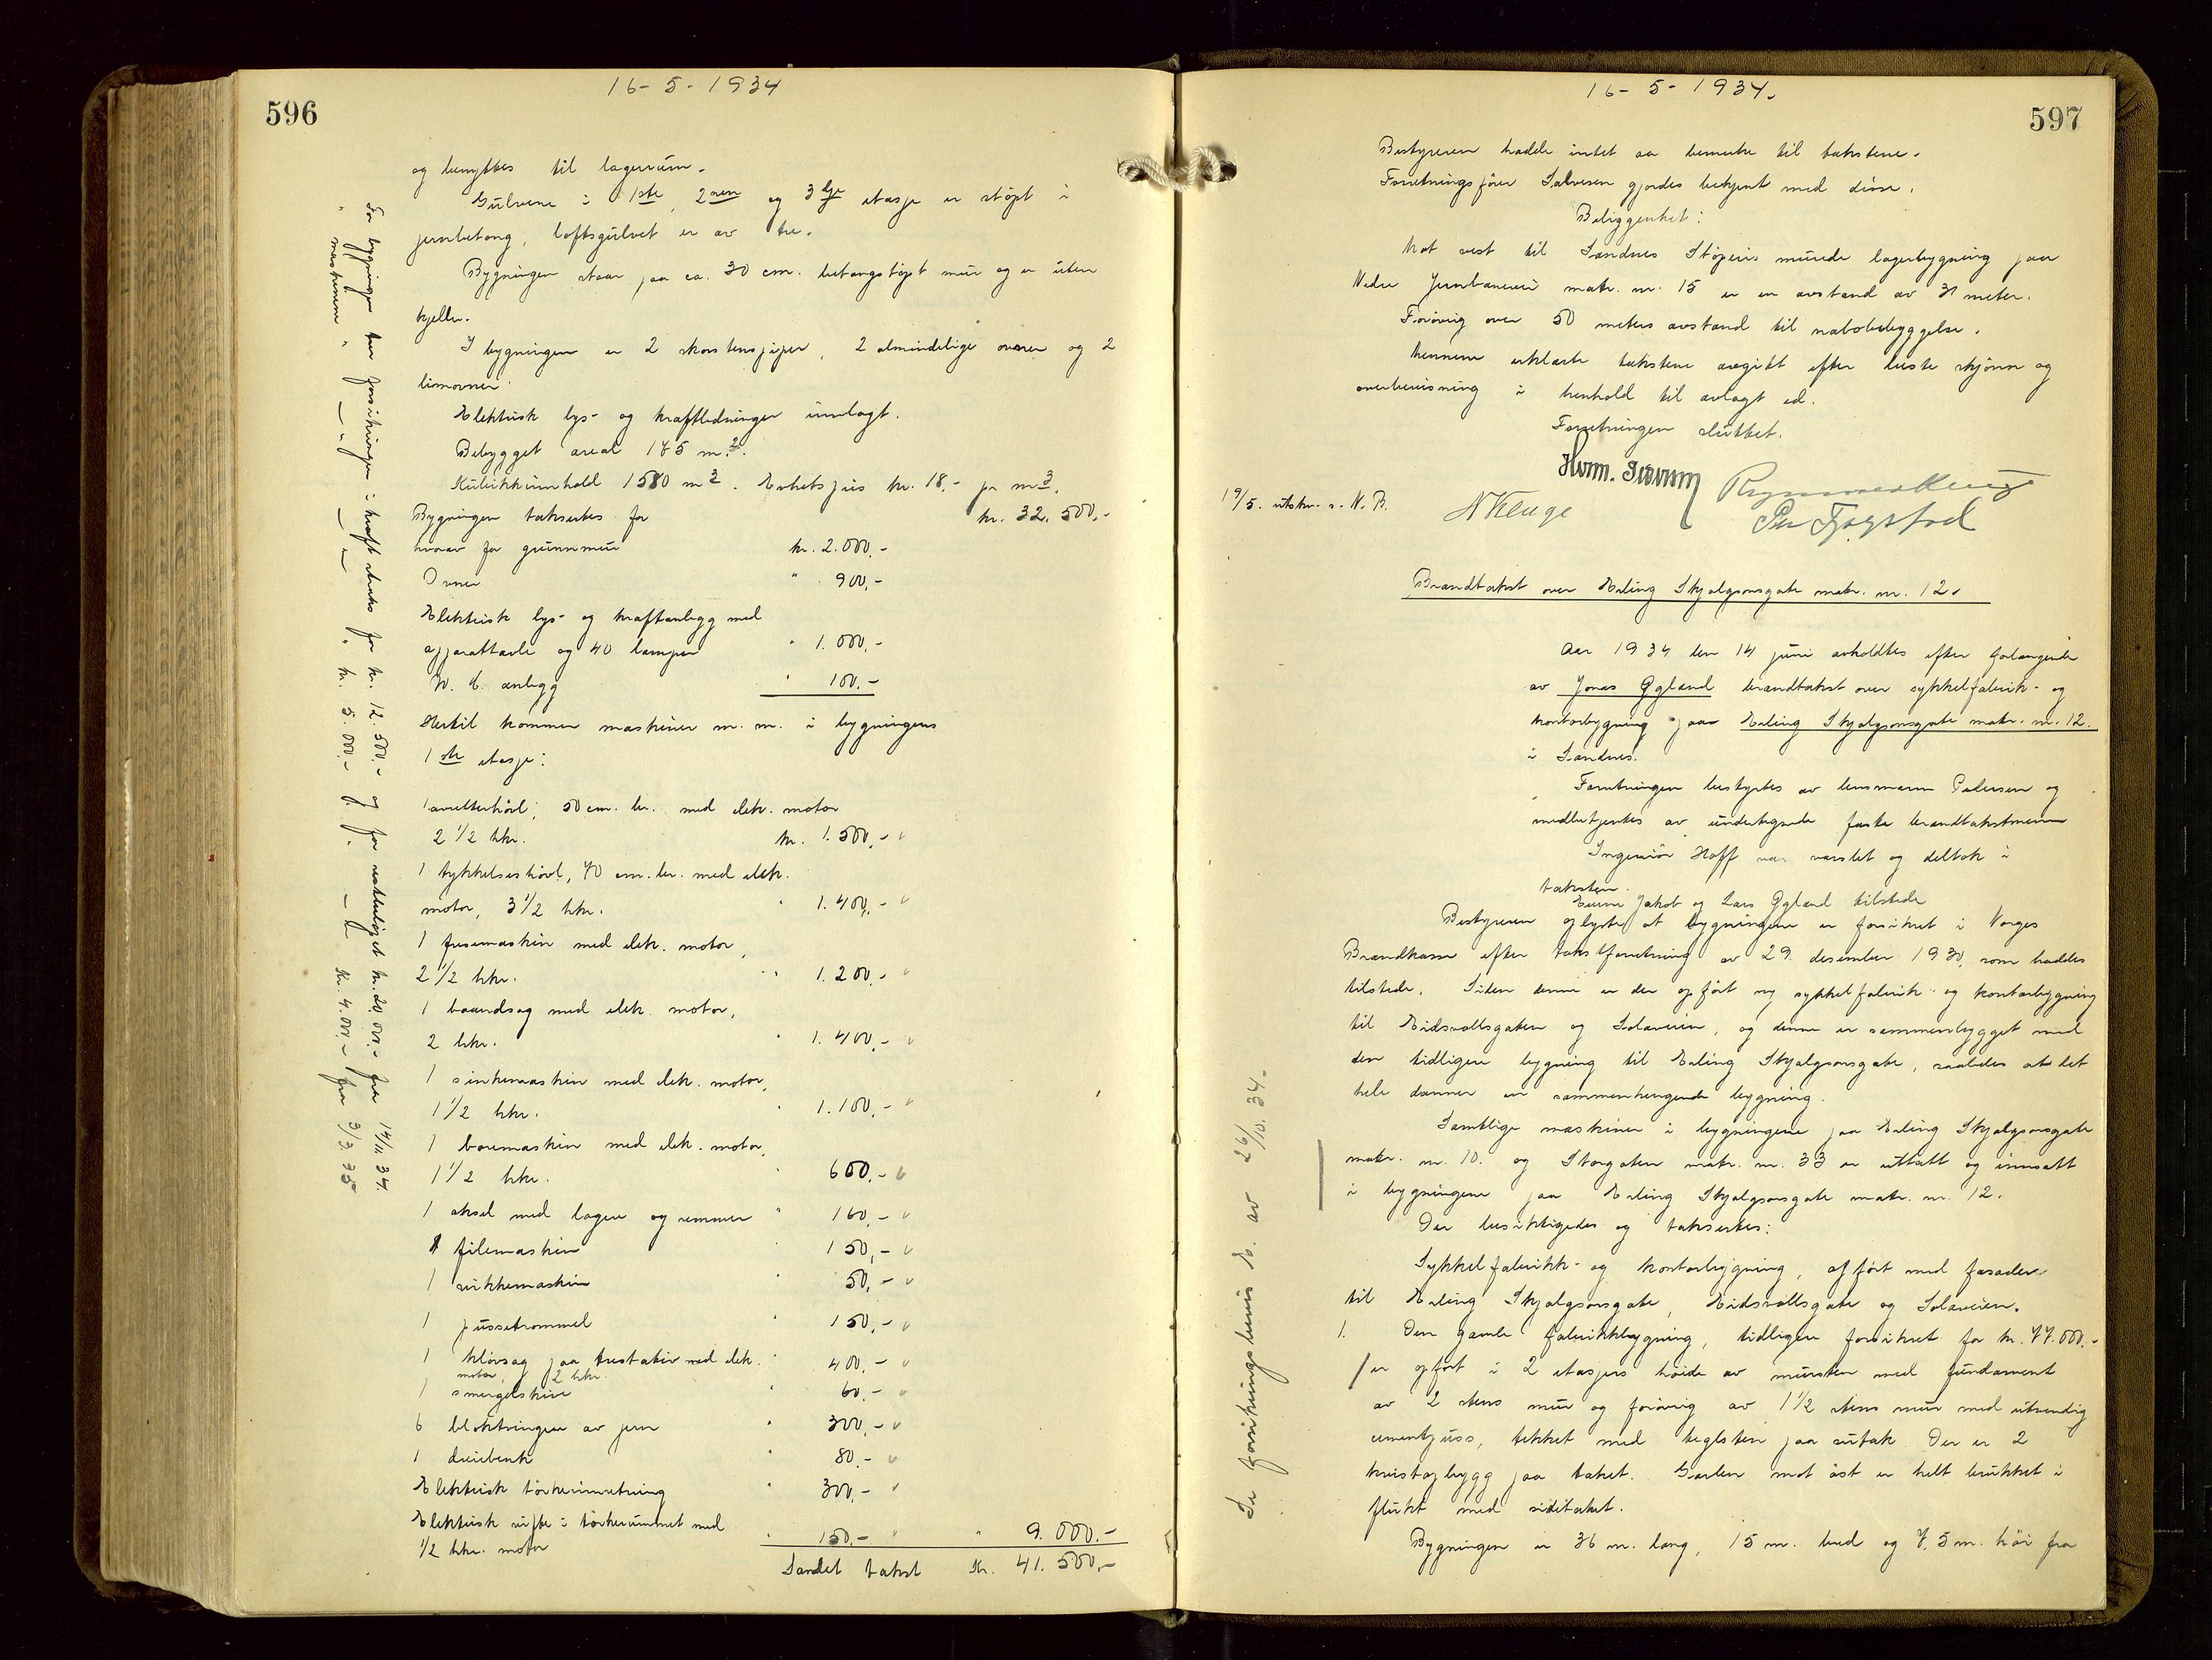 596
16-5-1934
og benyttes til lagerrum.
Gulvene i 1ste, 2nen og 3dje etasje er støpt i
jernbetong, loftsgulvet er av tre.
Bygningen staar paa ca. 30 cm. betongstøpt mur og er uten
kjeller.
I bygningen er 2 skorstenspiper, 2 almindelige ovner og 2
limovner.
Elektrisk lys- og kraftledninger innlagt.
Bebygget areal 185 m.2.
Kubikkinnhold 1580 m3. Enhetspris kr. 18,- pr m3.
Bygningen takseres for kr. 32.500,-
hvorav for grunnmur kr. 2.000,-
Ovner " 900,-
Elektrisk lys- og kraftanlegg med
apparattavle og 40 lamper " 1.000,-
W.C. anlegg " 100,-
Hertil kommer maskiner m. m. i bygningens
1ste etasje:
1 avretterhövl, 50 cm. br. med elek. motor
2 1/2 hkr. kr. 1.500,-
1 tykkelseshövl, 70 cm. br. med elek.
motor, 3 1/2 hkr. " 1.400,-
1 fresemaskin med elek. motor,
2 1/2 hkr. " 1.200,-
1 baandsag med elek. motor,
2 hkr. " 1.400,-
1 sinkemaskin med elek. motor,
1 1/2 hkr. " 1.100,-
1 boremaskin med elek. motor,
1 1/2 hkr. " 600,-
1 aksel med lagere og remmer " 160,-
1 filemaskin 150,-
1 vikkemaskin " 50,-
1 pussetrommel " 150,-
1 klövsag paa trestativ med elek. " 400,-
motor, 2 hkr.
1 smergelskive " 60,-
6 bloktvinger av jern " 300,-
1 dreiebenk " 80,-
Elektrisk törkeinnretning " 300,-
Elektrisk vifte i törkerummet med
1/2 hkr. motor " 150,- " 9.000,-
Samlet takst Kr. 41.500,-
For bygningen trer forsikringen i kraft straks for kr. 12.500,- og for restbelöpet kr. 20.000,- fra 14/11 34.
" maskinene " — " — " kr. 5.000,- kr. 4.000,- fra 3/3 35
597
16-5-1934.
Bestyreren hadde intet aa bemerke til takstene.
Forretningsförer Salvesen gjordes bekjent med disse.
Beliggenhet:
Mot vest til Sandnes Støperis murede lagerbygning paa
Nedre Jernbanevei matr. nr. 15 er en avstand av 31 meter.
Forövrig over 50 meters avstand til nabobebyggelse.
Mennene erklærte takstene avgitt efter beste skjönn og
overbevisning i henhold til avlagt ed.
Forretningen sluttet.
19/5. utskr. s. N. B.
N Kluge
Brandtakst over Erling Skjalgsonsgate matr. nr. 12.
Aar 1934 den 14 juni avholdtes efter forlangende
av Jonas Øgland brandtakst over sykkelfabrik- og
kontorbygning paa Erling Skjalgsonsgate matr. nr. 12.
i Sandnes.
Forretningen bestyrtes av lensmann Pedersen og
medbetjentes av undertegnede faste brandtakstmenn
Ingeniör Hoff var varslet og deltok i
taksten.
Eierne Jakob og Lars Øgland tilstede
Bestyreren oplyste at bygningene er forsikret i Norges
Brandkasse efter takstforretning av 29. desember 1930, som haddes
tilstede. Siden denne er der opfört ny sykkelfabrik- og kontorbygning
til Eidsvollsgaten og Solaveien, og denne er sammenbygget med
den tidligere bygning til Erling Skjalgsonsgate, saaledes at det
hele danner en sammenhengende bygning.
Samtlige maskiner i bygningene paa Erling Skjalgsonsgate
matr. nr. 10. og Storgaten matr. nr. 33 er uttatt og innsatt
i bygningene paa Erling Skjalgsonsgate matr. nr. 12.
Der besiktigedes og taksertes:
Sykkelfabrikk- og kontorbygning, opfört med fasader
til Erling Skjalgsonsgate, Eidsvollsgate og Solaveien.
1. Den gamle fabrikkbygning, tidligere forsikret for kr. 77.000.-
er opfört i 2 etasjers höide av mursten med fundament
av 2 stens mur og forövrig av 1 1/2 stens mur med utvendig
cementpuss, tekket med teglsten paa sutak. Der er 2
kvistopbygg paa taket. Gavlen mot öst er helt brukket i
flukt med sidetaket.
Bygningen er 36 m. lang, 15 m. bred og 7,5 m. höi fra
Se forsikringsbevis av 26/10. 34.